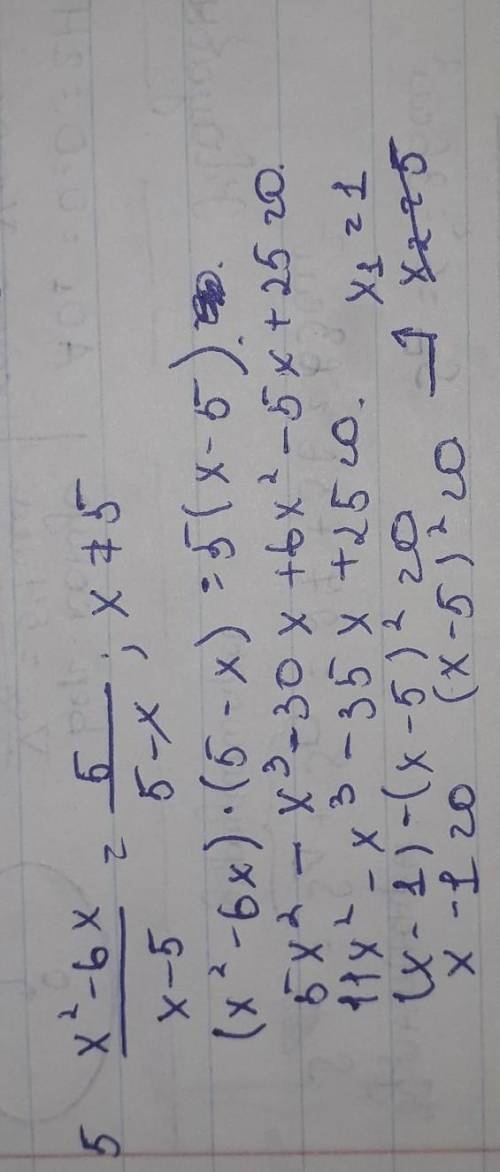 5 x²-6x / x-5 = 5 / 5-x ; x≠5
(x²-6x)·(5-x)=5(x-5).
5x²-x³-30x+6x²-5x+25=0.
11x²-x³-35x+25=0. x1=1
(x-1)-(x-5)²=0
x-1=0 (x-5)²=0 → x2=5